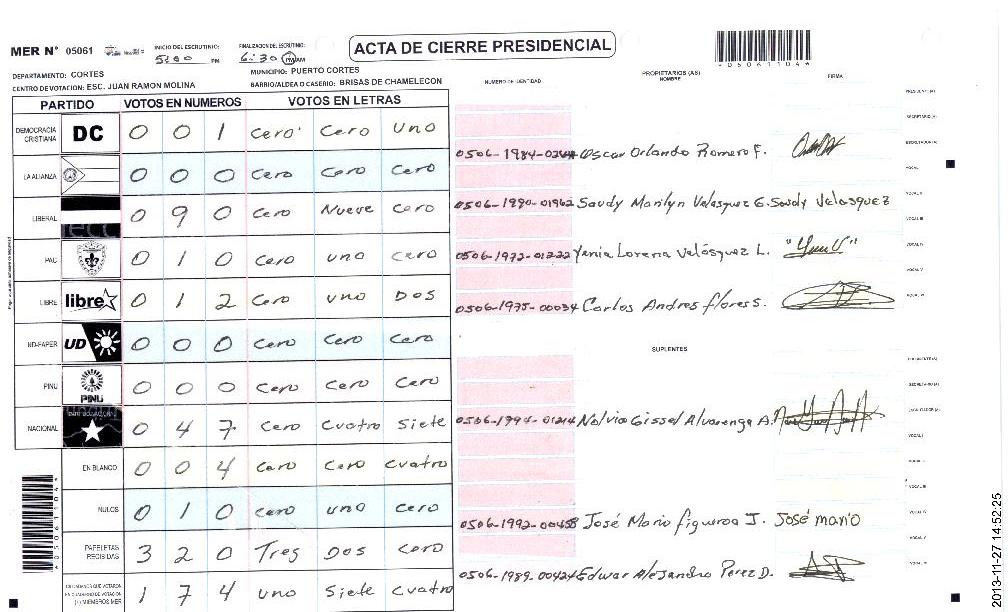 MER N° 05061
INICIO DEL ESCRUTINIO: 5:00 PM
FINALIZACION DEL ESCRUTINIO: 6:30 PM AM
ACTA DE CIERRE PRESIDENCIAL
DEPARTAMENTO: CORTES
MUNICIPIO: PUERTO CORTES
CENTRO DE VOTACION: ESC. JUAN RAMON MOLINA
BARRIO/ALDEA O CASERIO: BRISAS DE CHAMELECON
NUMERO DE IDENTIDAD
PROPIETARIOS (AS)
NOMBRE
FIRMA
PARTIDO VOTOS EN NUMEROS VOTOS EN LETRAS
DEMOCRACIA CRISTIANA DC 0 0 1 Cero Cero Uno
LA ALIANZA 0 0 0 Cero Cero Cero
LIBERAL 0 9 0 Cero Nueve Cero
PAC 0 1 0 Cero uno cero
LIBRE libre 0 1 2 Cero uno Dos
UD-FAPER UD 0 0 0 Cero Cero Cero
PINU PINU 0 0 0 Cero Cero Cero
NACIONAL 0 4 7 Cero Cuatro Siete
EN BLANCO 0 0 4 Cero Cero Cuatro
NULOS 0 1 0 Cero uno Cero
PAPELETAS RECIBIDAS 3 2 0 Tres Dos Cero
CIUDADANOS QUE VOTARON EN CUADERNO DE VOTACION (+) MIEMBROS MER 1 7 4 uno Siete Cuatro
Oscar Orlando Romero F.
0506-1980-01962 Saudy Marilyn Velasquez G. Saudy Velasquez
0506-1972-01222 Yenia Lorena Velásquez L.
0506-1975-00034 Carlos Andres flores S.
SUPLENTES
0506-1994-01214 Nolvia Gissel Alvarenga A.
0506-1992-00458 José Mario figueroa J. José mario
0506-1989-00424 Edwar Alejandro Perez D.
2013-11-27 14:52:25